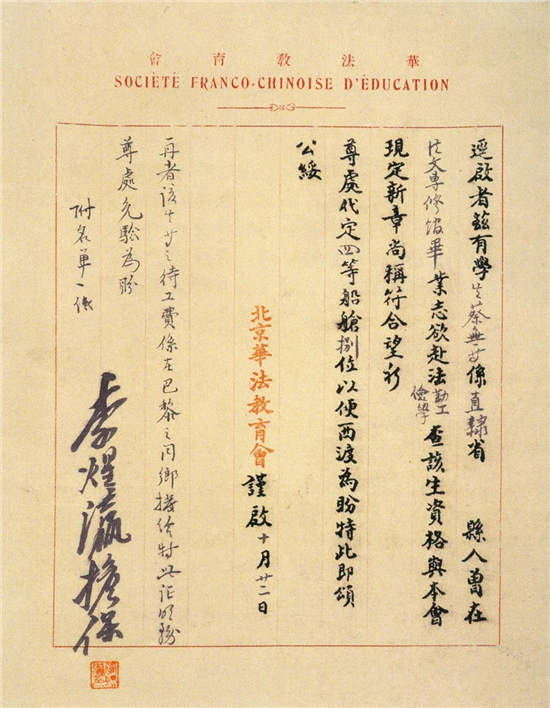 華法教育會
SOCIÉTÉ FRANCO-CHINOISE D'ÉDUCATION
逕啟者茲有學生蔡無等係直隸省 縣人曾在
法文專修館畢業志欲赴法勤工儉學查該生資格與本會
現定新章尚稱符合望祈
尊處代定四等船艙捌位以便西渡為盼特此即頌
公綏
北京華法教育會謹啟十月廿二日
再者該生等之待工費係在巴黎之同鄉接給特此証明務
尊處允騐為盼
附名單一紙
李煜瀛擔保